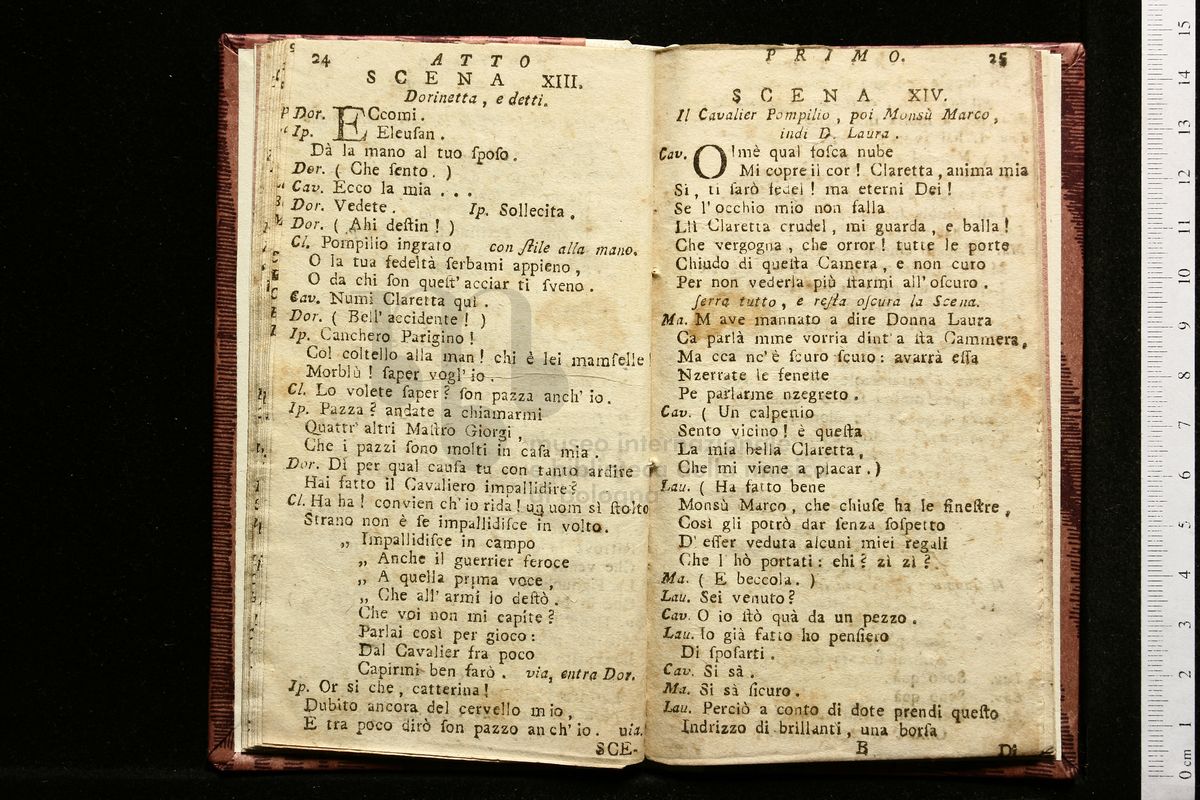 24
A T T O
S C E N A XIII.
Dorinetta, e detti.
Dor. ECcomi.
Ip. Eleuſan.
Dà la mano al tuo ſpoſo.
Dor. ( Che ſento. )
Cav. Ecco la mia . . .
Dor. Vedete. Ip. Sollecita.
Dor. ( Ahi deſtin ! )
Cl. Pompilio ingrato con ſtile alla mano.
O la tua fedeltà ſerbami appieno,
O da chi ſon queſt' acciar ti ſveno.
Cav. Numi Claretta qui.
Dor. ( Bell' accidente ! )
Ip. Canchero Parigino !
Col coltello alla man ! chi è lei mamſelle
Morblù ! ſaper vogl' io.
Cl. Lo volete ſaper ? ſon pazza anch' io.
Ip. Pazza ? andate a chiamarmi
Quattr' altri Maſtro Giorgi,
Che i pazzi ſono molti in caſa mia.
Dor. Di per qual cauſa tu con tanto ardire
Hai fatto il Cavaliero impallidire ?
Cl. Ha ha ! convien ch' io rida ! un uom sì ſtolto
Strano non è ſe impallidiſce in volto.
„ Impallidiſce in campo
„ Anche il guerrier feroce
„ A quella prima voce,
„ Che all' armi lo deſtò.
Che voi non mi capite ?
Parlai così per gioco :
Dal Cavalier fra poco
Capirmi ben farò. via, entra Dor.
Ip. Or si che, catterina !
Dubito ancora del cervello mio,
E tra poco dirò ſon pazzo anch' io. via.
SCE-
P R I M O.
25
S C E N A XIV.
Il Cavalier Pompilio, poi Monsù Marco,
indi D. Laura.
Cav. OImè qual foſca nube
Mi copre il cor ! Claretta, anima mia
Si, ti ſarò fedel ! ma eterni Dei !
Se l' occhio mio non falla
Llì Claretta crudel, mi guarda, e balla !
Che vergogna, che orror ! tutte le porte
Chiudo di queſta Camera, e non curo
Per non vederla più ſtarmi all' oſcuro.
ſerra tutto, e reſta oſcura la Scena.
Ma. M ave mannato a dire Donna Laura
Ca parlà mme vorria dint' a ſta Cammera,
Ma cca nc' è ſcuro ſcuro : avarrà eſſa
Nzerrate le feneſte
Pe parlarme nzegreto.
Cav. ( Un calpeſtio
Sento vicino ! è queſta
La mia bella Claretta,
Che mi viene a placar. )
Lau. ( Ha fatto bene
Monsù Marco, che chiuſe ha le fineſtre,
Così gli potrò dar ſenza ſoſpetto
D' eſſer veduta alcuni miei regali
Che l' hò portati : ehi ? zi zi ?
Ma. ( E beccola. )
Lau. Sei venuto ?
Cav. O io ſtò quà da un pezzo.
Lau. Io già fatto ho penſiero
Di ſpoſarti.
Cav. Si sà.
Ma. Si sà ſicuro.
Lau. Perciò a conto di dote prendi queſto
Indrizzo di brillanti, una borſa
B
Di
museo internazionale
di bologna
0 cm 1 2 3 4 5 6 7 8 9 10 11 12 13 14 15